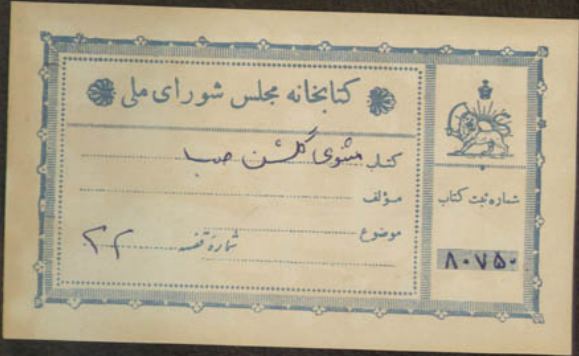 کتابخانه مجلس شورای ملی
کتاب مثنوی گلشن صبا
مؤلف
موضوع
شمارهٔ قفسه ۳۳
شماره ثبت کتاب
۸۰۷۵۰